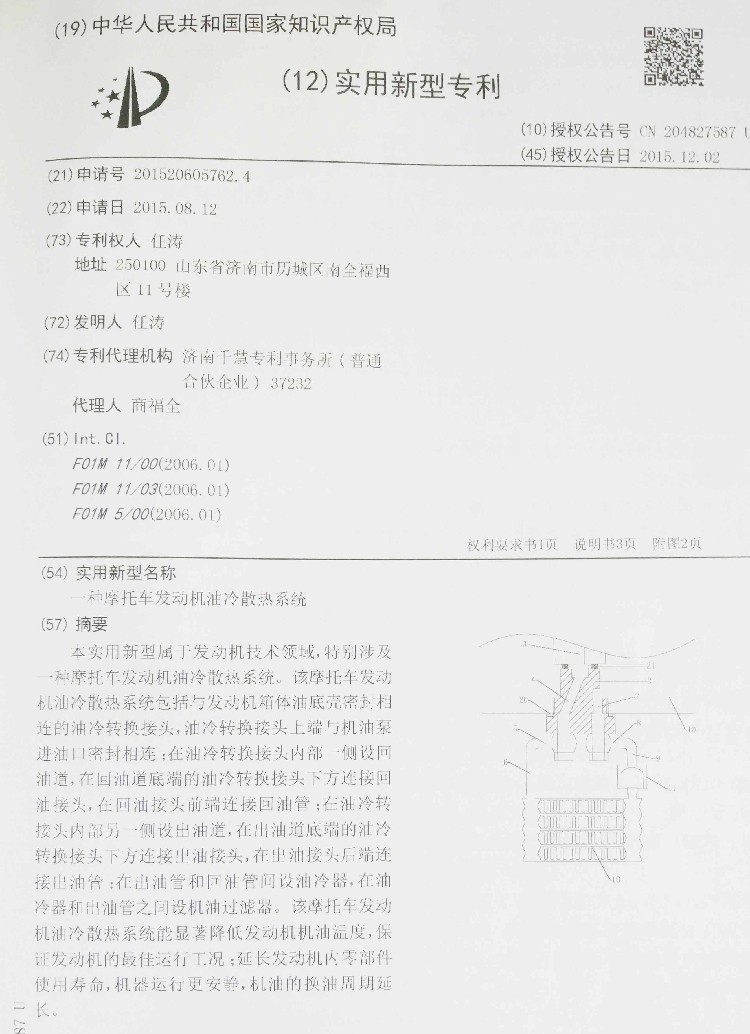 (19)中华人民共和国国家知识产权局
(12)实用新型专利
(10)授权公告号 CN 204827587 U
(45)授权公告日 2015.12.02
(21)申请号 201520605762.4
(22)申请日 2015.08.12
(73)专利权人 任涛
地址 250100 山东省济南市历城区南全福西
区 11 号楼
(72)发明人 任涛
(74)专利代理机构 济南千慧专利事务所(普通
合伙企业) 37232
代理人 商福全
(51)Int.Cl.
F01M 11/00(2006.01)
F01M 11/03(2006.01)
F01M 5/00(2006.01)
权利要求书1页 说明书3页 附图2页
(54)实用新型名称
一种摩托车发动机油冷散热系统
(57)摘要
本实用新型属于发动机技术领域,特别涉及
一种摩托车发动机油冷散热系统。该摩托车发动
机油冷散热系统包括与发动机箱体油底壳密封相
连的油冷转换接头,油冷转换接头上端与机油泵
进油口密封相连;在油冷转换接头内部一侧设回
油道,在回油道底端的油冷转换接头下方连接回
油接头,在回油接头前端连接回油管;在油冷转
接头内部另一侧设出油道,在出油道底端的油冷
转换接头下方连接出油接头,在出油接头后端连
接出油管;在出油管和回油管间设油冷器,在油
冷器和出油管之间设机油过滤器。该摩托车发动
机油冷散热系统能显著降低发动机机油温度,保
证发动机的最佳运行工况;延长发动机内零部件
使用寿命,机器运行更安静,机油的换油周期延
长。
3
21
2
20
7
8
10
9
10
87 U